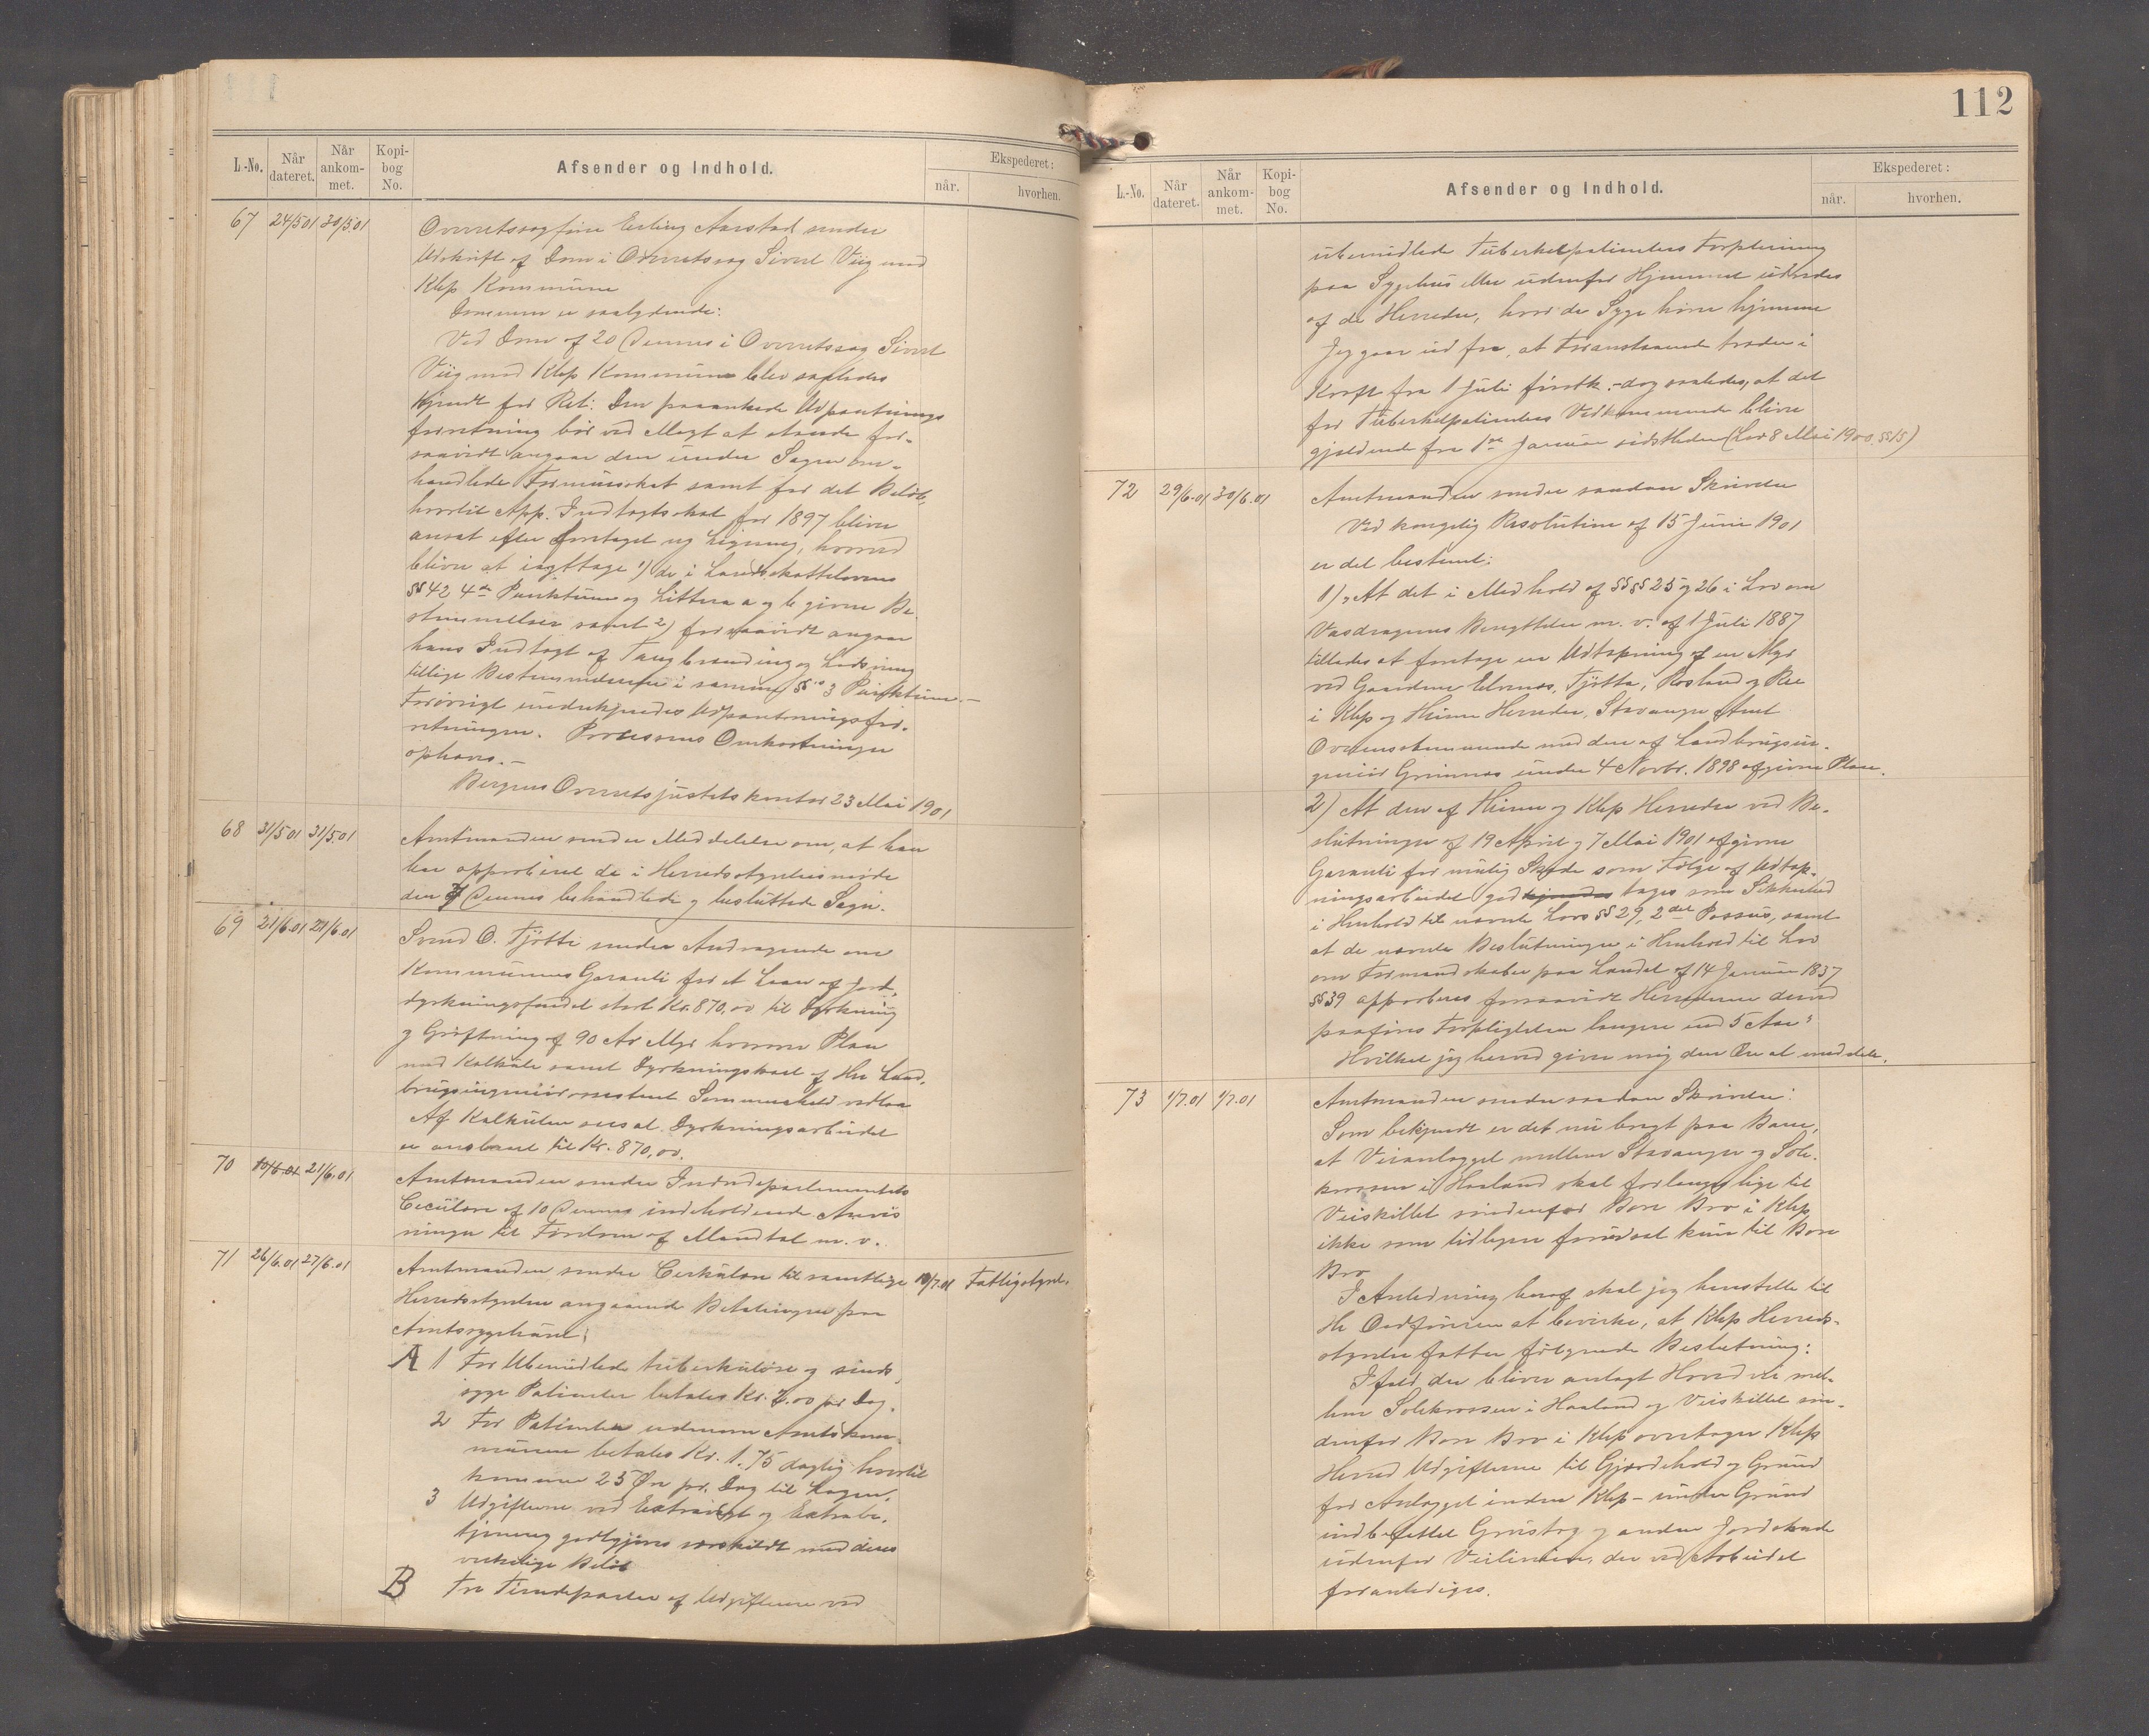 L.-No.
Når dateret.
Når ankom-met.
Kopi-bog No.
Afsender og Indhold.
Ekspederet:
når.
hvorhen.
67 24/5 01 30/5.01
Overretssagfører Erling Aarstad sender
Udskrift af Dom i Overretssag Sivert Viig mod
Klep Kommune
Dommen er saalydende:
Ved Dom af 20 Dennes i Overretssag Sivert
Viig mod Klep Kommune blev saaledes
kjendt for Ret: Den paaankede Udpantnings
forretning bør ved Magt at stande for-
saavidt angaar den under Sagen om-
handlede Formuesskat samt for det Beløb,
hvortil App. Indtægtsskat for 1897 bliver
ansat efter foretaget ny Ligning, hvorved
bliver at iagttage 1) de i Landsskattelovens
§§ 42 4de Punktum og Littera a og b givne Be-
stemmelser samt 2) forsaavidt angaar
hans Indtægt af Tangbrænding og Lodsning
tillige Bestemmelserne i samme §§s 3 Punktum.-
Forøvrigt underkjendes Udpantningsfor-
retningen. Processens Omkostninger
ophæves.-
Bergens Overretsjustitskontor 23 Mai 1901
68 31/5 01 31/5.01
Amtmanden sender Meddelelse om, at han
har approberet de i Herredsstyrelsesmøde
den 7 Dennes behandlede og besluttede Sager.
69 21/6.01 21/6.01
Svend O. Tjøtta sender Andragende om
Kommunens Garanti for et Laan af Jord-
dyrkningsfondet stort Kr. 870,00 til Dyrkning
og Grøftning af 90 Ar Myr hvorom Plan
med Kalkule samt Dyrkningskart af Hr. Land-
brugsingeniørassistent Sommerschield vedlaa
Af Kalkulen sees at Dyrkningsarbeidet
er anslaaet til Kr. 870,00.
70 10/6.01 21/6.01
Amtmanden sender Indredepartementets
Circulære af 10 Dennes indeholdende Anvis
ninger til Førelsen af Mandtal m. v.
71 26/6.01 27/6.01
Amtmanden sender Cirkulære til samtlige 10/7.01 Fattigstyrel.
Herredsstyrelser angaaende Betalingen paa
Amtssygehuse:
A 1 For Ubemidlede tuberkuløse og sinds
syge Patienter betales Kr. 1.00 pr Dag.
2 For Patienter udenom Amtskom-
munen betales Kr. 1.75 daglig hvortil
kommer 25 Øre pr. Dag til Lægen.
3 Udgifterne ved Extravagt og Extrabe-
tjening godtgjøres særskildt med deres
virkelige Beløb
B Tre Tiendeparter af Udgifterne ved
112
L.-No.
Når dateret.
Når ankom-met.
Kopi-bog No.
Afsender og Indhold.
Ekspederet:
når.
hvorhen.
ubemidlede Tuberkelpatienters Forpleining
paa Sygehus eller udenfor Hjemmet udredes
af de Herreder, hvor de Syge hører hjemme
Jeg gaar ud fra, at Foranstaaende træder i
Kraft fra 1 Juli førstk. - dog saaledes, at det
for Tuberkelpatienters Vedkommende bliver
gjældende fra 1ste Januar sidstleden (Lov 8 Mai 1900, §§ 15)
72 29/6.01 30/6.01
Amtmanden sender saadan Skrivelse
Ved kongelig Resolution af 15 Juni 1901
er det bestemt:
1) "At det i Medhold af §§§§ 25 og 26 i Lov om
Vasdragenes Benyttelse m. v. af 1 Juli 1887
tillades at foretage en Udtapning af en Myr
ved Gaardene Elvenes, Tjøtta, Rosland og Ree
i Klep og Thime Herreder, Stavanger Amt
Overensstemmende med den af Landbrugsin-
geniør Grimnes under 4 Novbr. 1898 afgivne Plan.
2) At den af Thime og Klep Herreder ved Be-
slutninger af 19 April og 7 Mai 1901 afgivne
Garanti for mulig Skade som Følge af Udtap-
ningsarbeidet godkjendes tages som Sikkerhed
i Henhold til nævnte Lovs §§ 29, 2det Passus, samt
at de nævnte Beslutninger i Henhold til Lov
om Formandskaber paa Landet af 14 Januar 1837
§§ 39 approberes forsaavidt Herrederne derved
paaføres Forpligtelser længere end 5 Aar"
Hvilket jeg herved giver mig den Ære at meddele.
73 1/7.01 1/7.01
Amtmanden sender saadan Skrivelse:
Som bekjendt er det nu bragt paa Bane,
at Veianlægget mellem Stavanger og Sole-
krossen i Haaland skal forlænges lige til
Veiskillet søndenfor Bore Bro i Klep,
ikke som tidligere forudsat kun til Bore
Bro
I Anledning heraf skal jeg henstille til
Hr Ordføreren at bevirke, at Klep Herreds-
styrelse fatter følgende Beslutning:
Ifald der bliver anlagt Hovedvei mel-
lem Solekrossen i Haaland og Veiskillet søn-
denfor Bore Bro i Klep overtager Klep
Herred Udgifterne til Gjærdehold og Grund
for Anlægget inden Klep - under Grund
indbefattet Grustag og anden Jordskade
udenfor Veilinien, der ved Arbeidet
foranlediges.